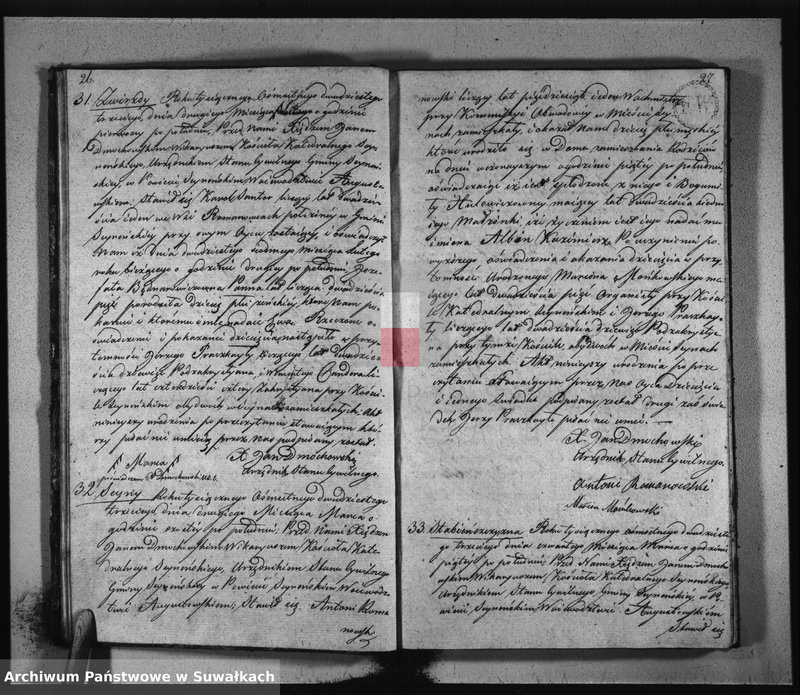 26
31. Zwirzdy Roku tysiącznego Ośmsetnego dwudziestego
trzeciego, dnia drugiego Miesiąca Marca o godzinie
pierwszey po południu. Przed Nami Xiędzem Janem
Dmochowskim Wikaryuszem Kościoła Katedralnego Sey-
neńskiego, Urzędnikiem Stanu Cywilnego Gminy Seyneń-
skiey, w Powiecie Seyneńskim Woiewodztwie Augustow-
skiem; Stawił się Karol liczący lat dwadzie-
ścia ieden we Wsi Romanowcach położoney w Gminie
Seyneńskiey przy swym Oycu zostaiący, i oświadczył
Nam iż dnia dwudziestego siodmego miesiąca Lutego
roku bieżącego o godzinie drugiey po południu,
Panna licząca dwadzieścia
pięć porodziła dziecię płci żeńskiey, które Nam po-
kazuie i któremu imie nadaie Ewa. Poczem o-
świadczeniu i pokazaniu dziecięcia nastąpiło w przy-
tomności Jerzego Praszkayty liczącego lat dwadzie-
ścia dziewięć Podzakrystyana, i Wincentego
liczącego lat czterdzieści cztery Zakrystyana przy Kości-
ele Seyneńskim obydwoch w Seynach zamieszkałych. Akt
ninieyszy urodzenia po przeczytaniu stawaiącym któ-
rzy pisać nie umieią przez Nas podpisany został.
Marca
X. Jan Dmochowski
Urzędnik Stanu Cywilnego.
32. Seyny Roku tysiącznego Ośmsetnego dwudziestego
trzeciego, dnia drugiego Miesiąca Marca o
godzinie trzeciey po południu. Przed Nami Xiędzem
Janem Dmochowskim Wikaryuszem Kościoła Kate-
dralnego Seyneńskiego, Urzędnikiem Stanu Cywilnego
Gminy Seyneńskiey w Powiecie Seyneńskim Woiewodz-
twie Augustowskiem; Stawił się Antoni Roma-
nowsk
27
nowski liczący lat pięćdziesiąt ieden, Wachmistrz
przy Kommissyi Obwodowey w Mieście Sey-
nach zamieszkały, i okazał Nam dziecię płci męzkiey
które urodziło się w domu zamieszkania Rodziców
na dniu wczorayszym o godzinie piątey po południu,
oświadczaiąc iż iest spłodzone z niego i Bogumi-
ły Hulewiczowny, maiącey lat dwadzieścia siedm
iego Małżonki, i iż życzeniem iest iego nadać mu
imiona Albin Kazimierz. Po uczynieniu po-
wyższego oświadczenia i okazania dziecięcia w przy-
tomności Urodzonego Marcina Monikowskiego ma-
iącego lat dwadzieścia pięć Organisty przy Koście-
le Katedralnym Seyneńskim i Jerzego Praszkay-
ty liczącego lat dwadzieścia dziewięć Podzakrystya-
na przy tymże Kościele, obydwoch w Mieście Seynach
zamieszkałych. Akt ninieyszy urodzenia po prze-
czytaniu stawaiącym przez Nas Oyca dziecięcia
i iednego świadka podpisany został drugi zaś świa-
dek Jerzy Praszkayt pisać nie umie.
X. Jan Dmochowski
Urzędnik Stanu Cywilnego.
Antoni Romanowski
Marcin Monikowski
33. Roku tysiącznego ośmsetnego dwudzieste-
go trzeciego dnia czwartego Miesiąca Marca o godzinie
piątey po południu. Przed Nami Xiędzem Janem Dmocho-
wskim Wikaryuszem, Kościoła Katedralnego Seyneńskiego,
Urzędnikiem Stanu Cywilnego Gminy Seyneńskiey w Po-
wiecie Seyneńskim Woiewodztwie Augustowskiem
Stawił się
Archiwum Państwowe w Suwałkach